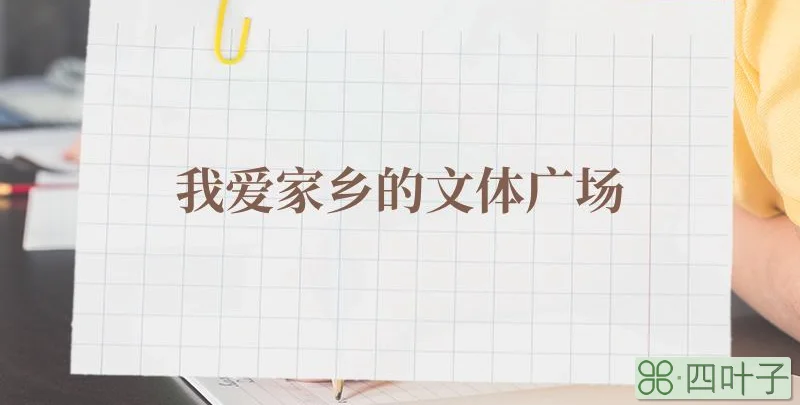 我爱家乡的文体广场
四叶子